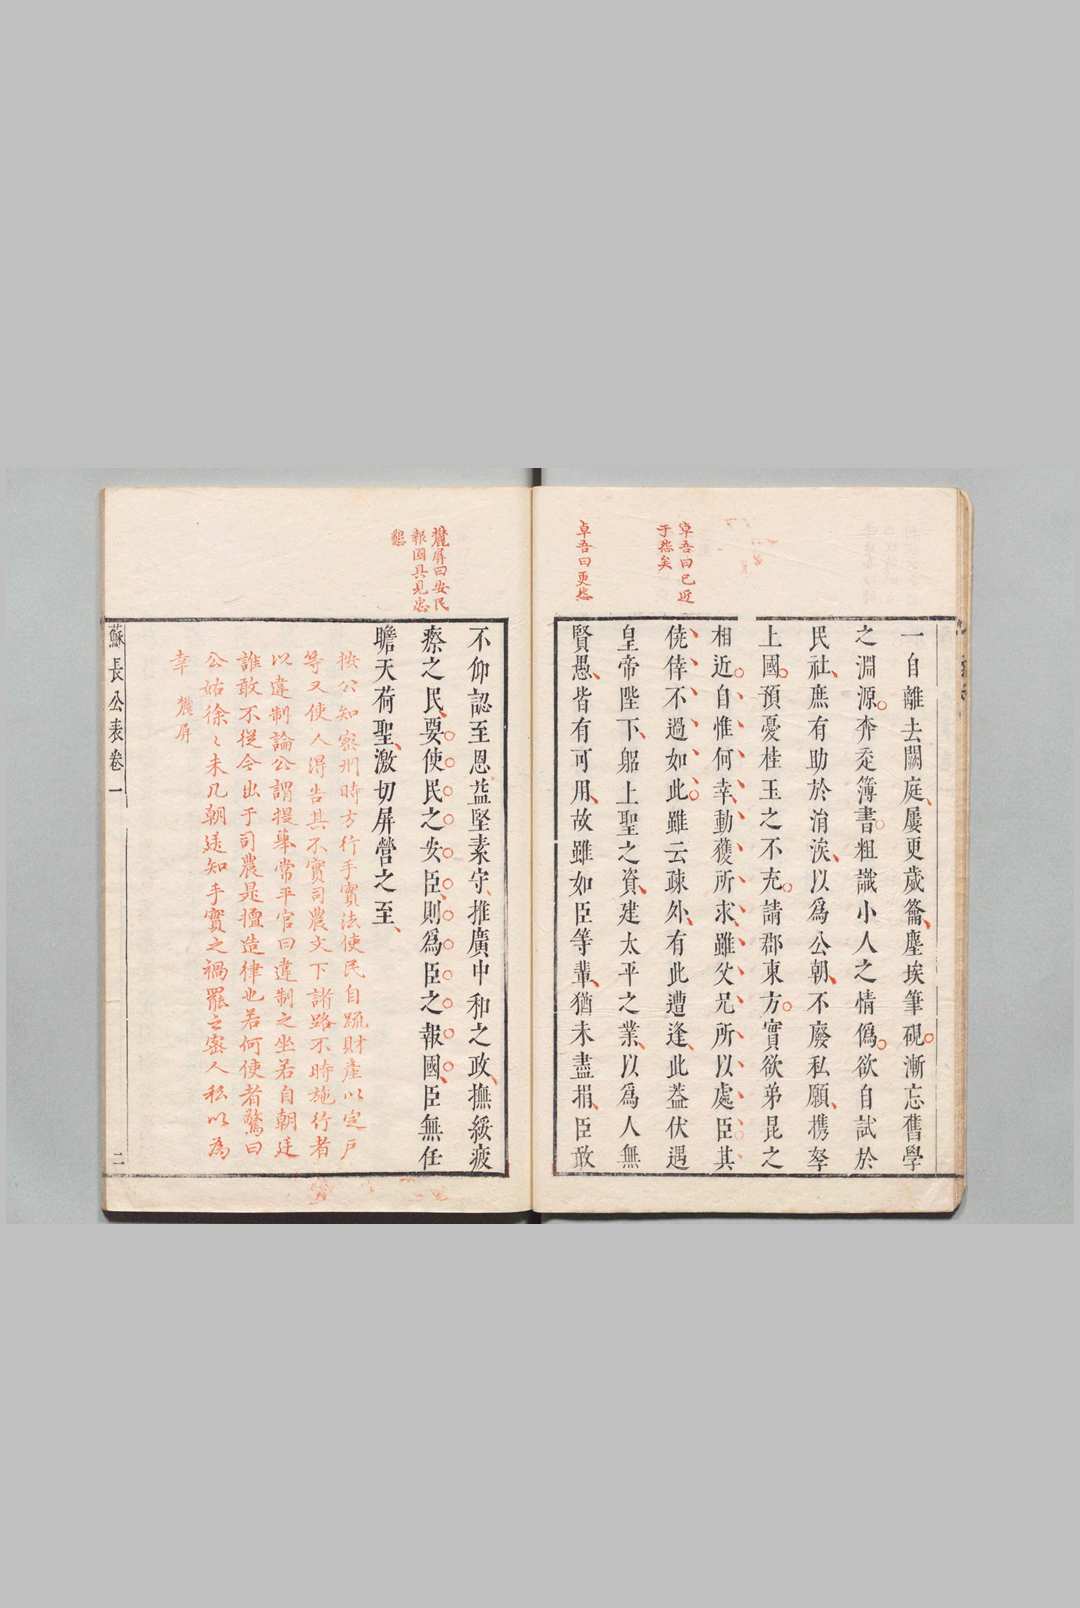 卓吾曰已近
于怨矣
卓吾曰更怨
一自離去闕庭屢更歲籥塵埃筆硯漸忘舊學
之淵源奔走簿書粗識小人之情僞欲自試於
民社庶有助於涓涘以爲公朝不廢私願攜孥
上國預憂桂玉之不充請郡東方實欲弟昆之
相近自惟何幸動獲所求雖父兄所以處臣其
僥倖不過如此雖云疎外有此遭逢此葢伏遇
皇帝陛下躬上聖之資建太平之業以爲人無
賢愚皆有可用故雖如臣等輩猶未盡捐臣敢
麓屏曰安民
報國具見忠
懇
不仰認至恩益堅素守推廣中和之政撫綏疲
瘵之民要使民之安臣則爲臣之報國臣無任
瞻天荷聖激切屏營之至
按公知密州時方行手實法使民自疏財產以定戶
等又使人得告其不實司農文下諸路不時施行者
以違制論公謂提舉常平官曰違制之坐若自朝廷
誰敢不從今出于司農是擅造律也若何使者驚曰
公姑徐〻未几朝廷知手實之禍罷之密人私以為
幸 麓屏
蘇長公表卷一
二